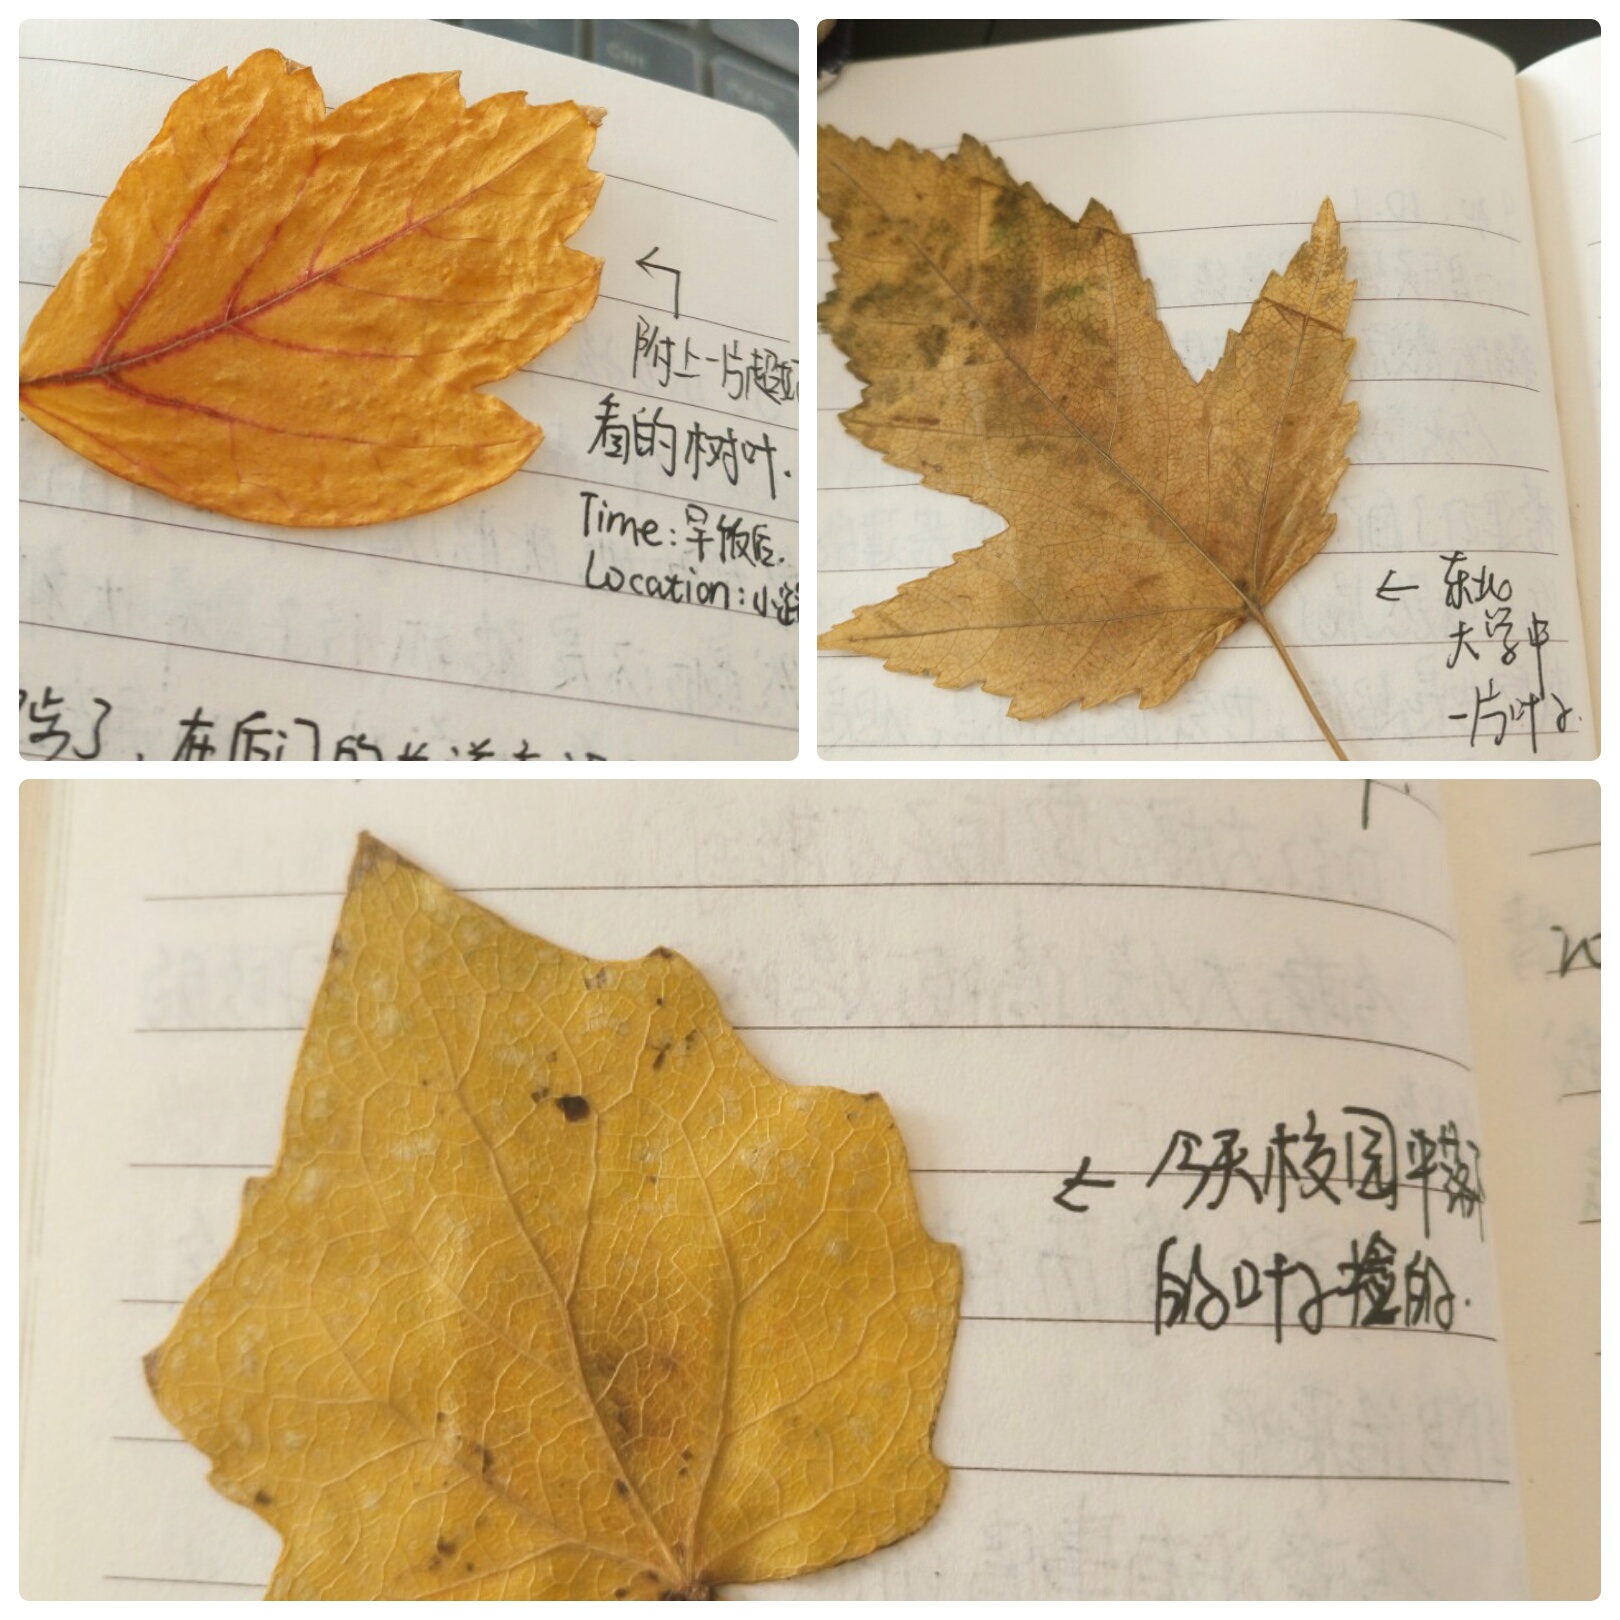 Ctrl
附上一片超级
看的树叶.
Time:早饭后.
Location:小路
了,在后门的
← 东北
大学中
一片叶子.
← 今天校园中落
的叶子捡的.